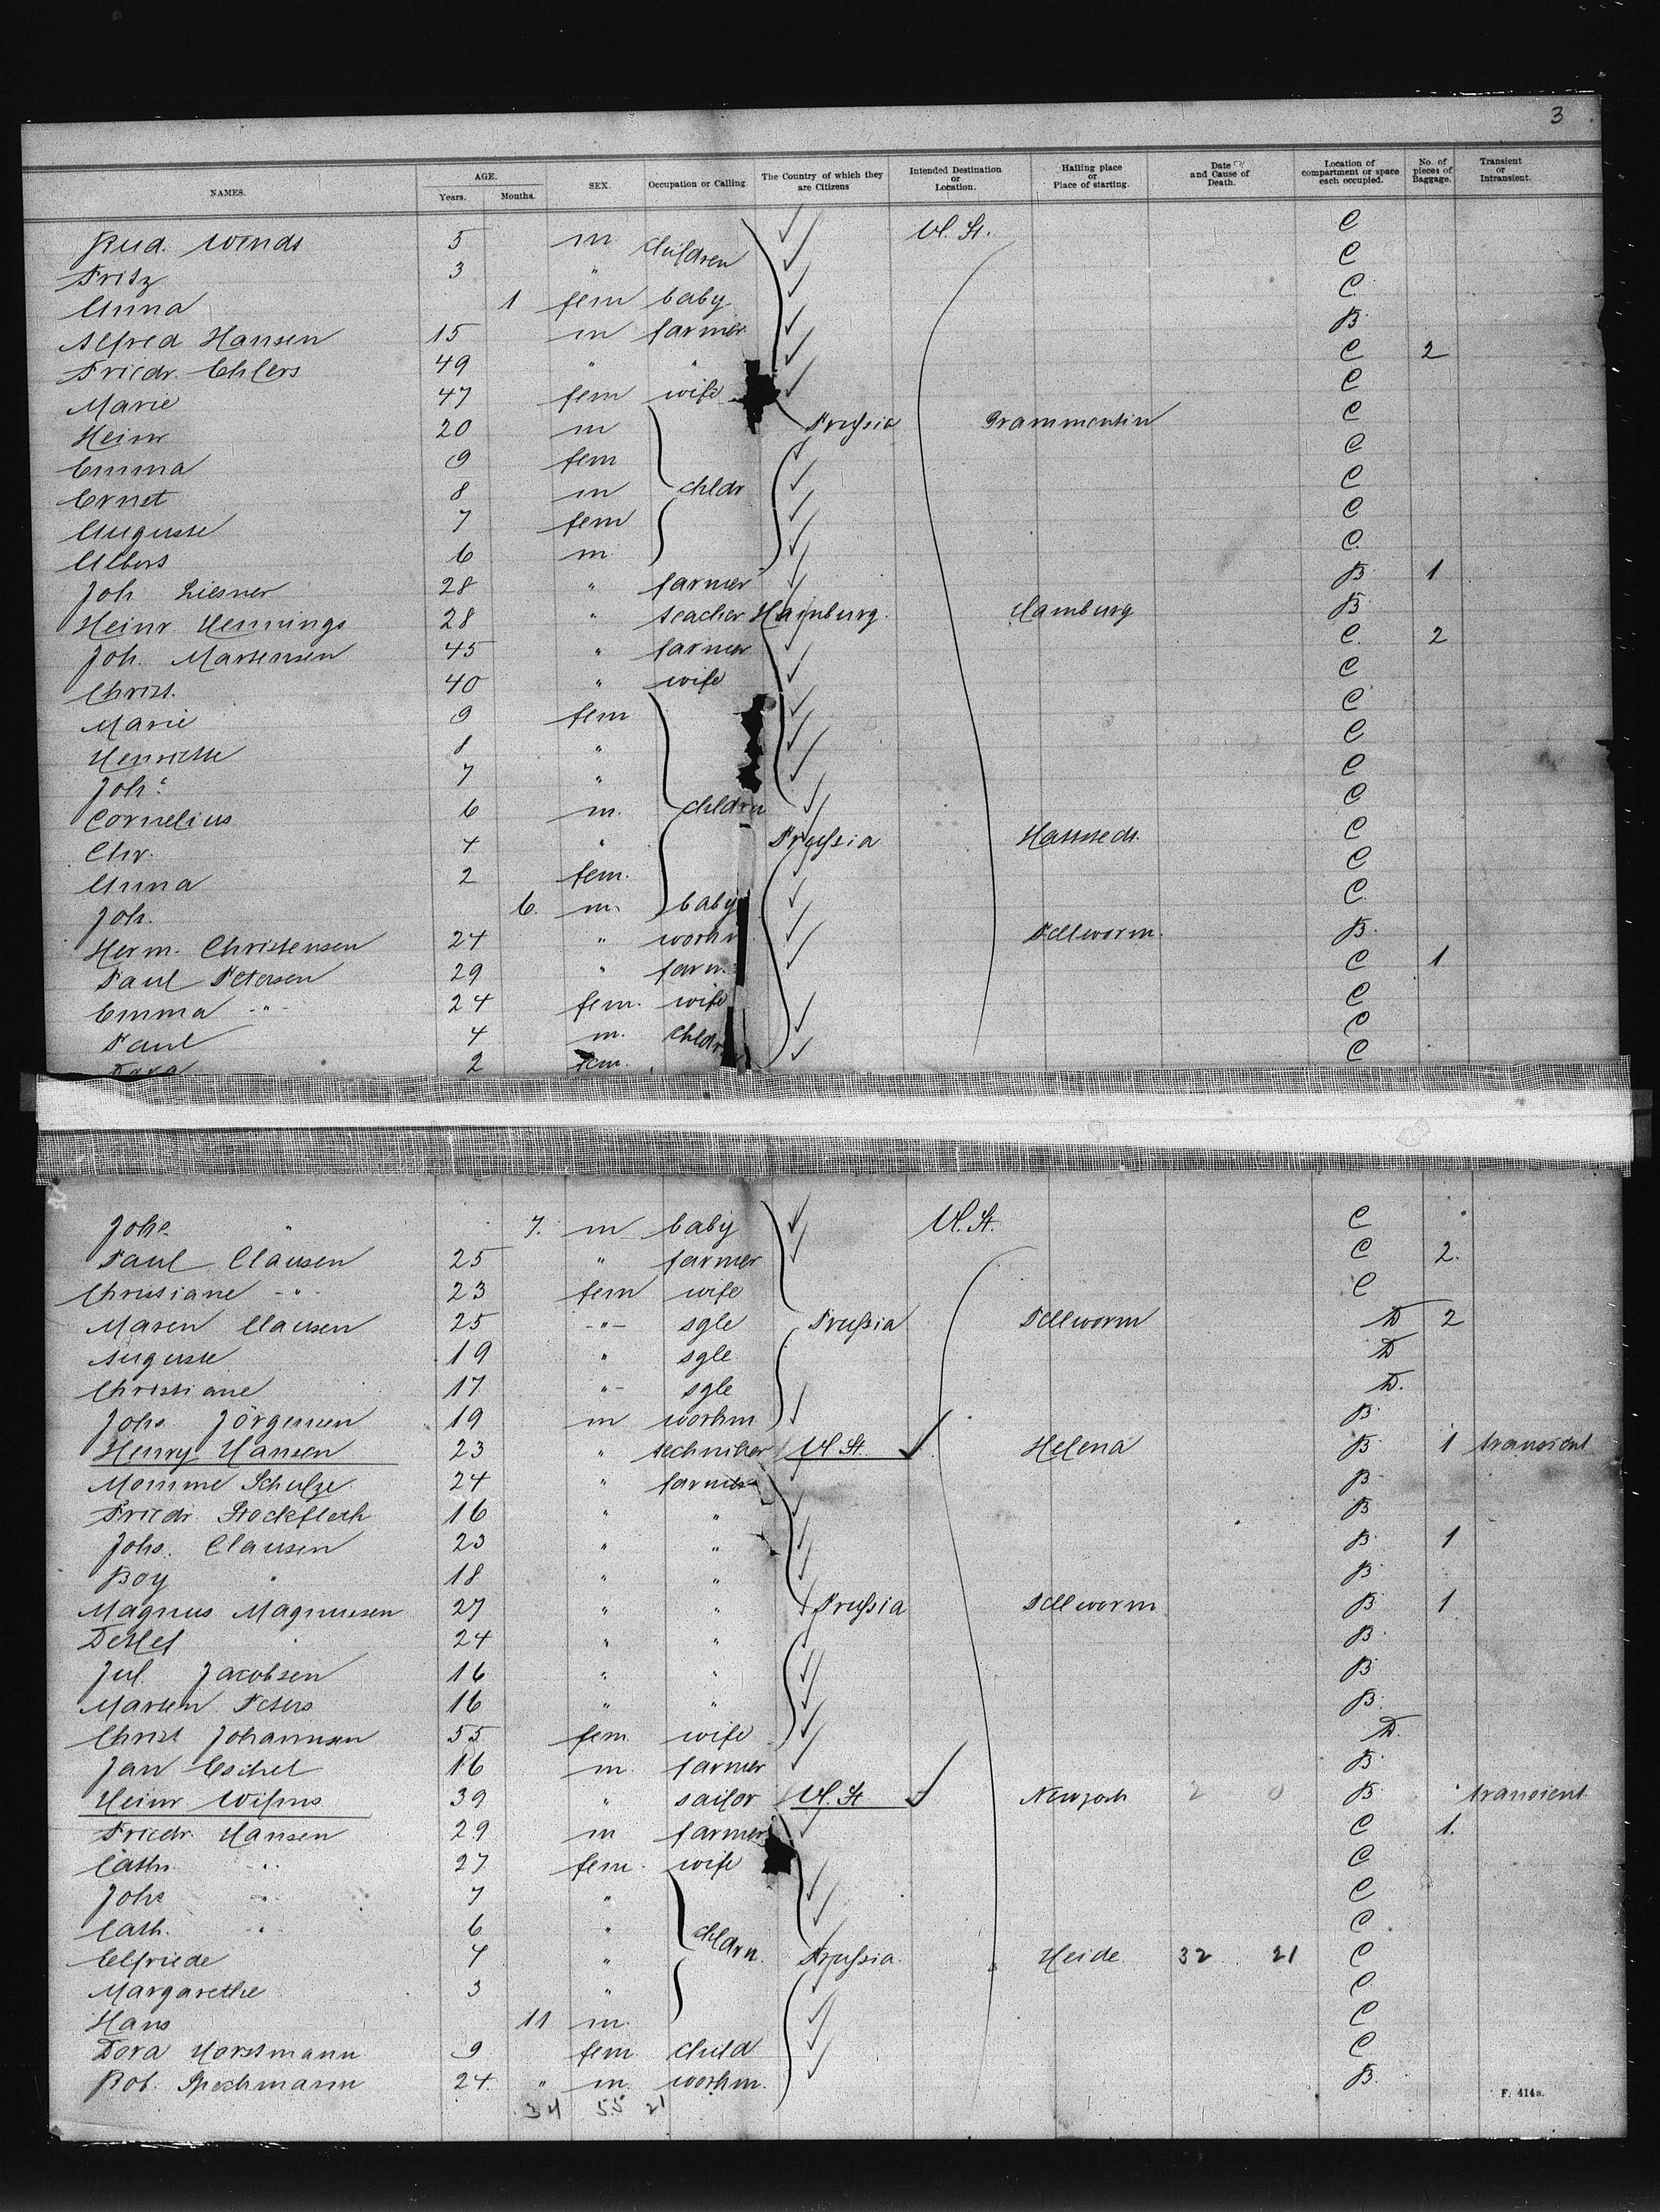 3
NAMES. AGE. Years. Months. SEX. Occupation or Calling The Country of which they are Citizens Intended Destination or Location. Hailing place or Place of starting. Date and Cause of Death. Location of compartment or space each occupied. No. of pieces of Baggage. Transient or Intransient.
Rud. Wends 5 m children U. St. C
Fritz 3 " C
Anna 1 fem baby C
Alfred Hansen 15 m farmer B
Friedr. Ehlers 49 " " C 2
Marie 47 fem wife C
Heinr 20 m Prussia Grammentin C
Emma 9 fem C
Ernst 8 m chldr C
Auguste 7 fem C
Albert 6 m C
Joh Liesner 28 " farmer B 1
Heinr Hennings 28 " teacher Hamburg. Hamburg B
Joh. Martensen 45 " farmer C. 2
Christ. 40 " wife C
Marie 9 fem C
Henriette 8 " C
Johs. 7 " C
Cornelius 6 m. chldrn C
Chr. 4 " Prussia C
Anna 2 fem. C
Joh. 6. m. baby C
Herm. Christensen 24 " workm Pellworm. B.
Paul Petersen 29 " farm C 1
Emma -"- 24 fem. wife C
Paul 4 m. chldr C
Dora 2 fem. C
Johs. " 7. m baby U. St. C
Paul Clausen 25 " farmer C 2.
Christiane -"- 23 fem wife C
Maren Clausen 25 -"- sgle Prussia Pellworm D 2
Auguste 19 " sgle D
Christiane 17 "- sgle D.
Johs. Jörgensen 19 m workm B
Henry Hansen 23 " techniker U. St. Helena B 1 transient
Momme Schulze 24 " farmer B
Friedr. Stockfleth 16 " " B
Johs. Clausen 23 " " B 1
Boy " 18 " " B
Magnus Magnussen 27 " " Prussia Pellworm B 1
Detlef " 24 " " B
Jul. Jacobsen 16 " " B
Marten Peters 16 " " B.
Christ Johannsen 55 fem. wife D.
Jan Eschel 16 m. farmer B
Heinr Wilms 39 " sailor U. St Newyork 2 0 B transient
Friedr. Hansen 29 m farmer C 1.
Cath. -"- 27 fem. wife C
Johs -"- 7 " C
Cath. -"- 6 " chldrn. C
Elfriede 4 " Prussia. Heide 32 21 C
Margarethe 3 " C
Hans 11 m. C
Dora Horstmann 9 fem child C
Rob. Spechmann 24. " m. workm. B.
34 55 21
F. 414a.